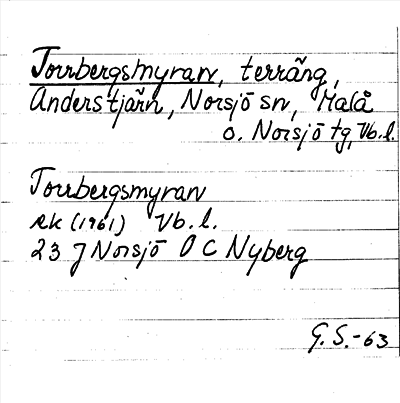 Torrbergsmyran, terräng,
Anderstjärn, Norsjö sn, Malå
o. Norsjö tg, Vb. l.
Torrbergsmyran
ek (1961) Vb. l.
23 J Norsjö O C Nyberg
G. S. - 63